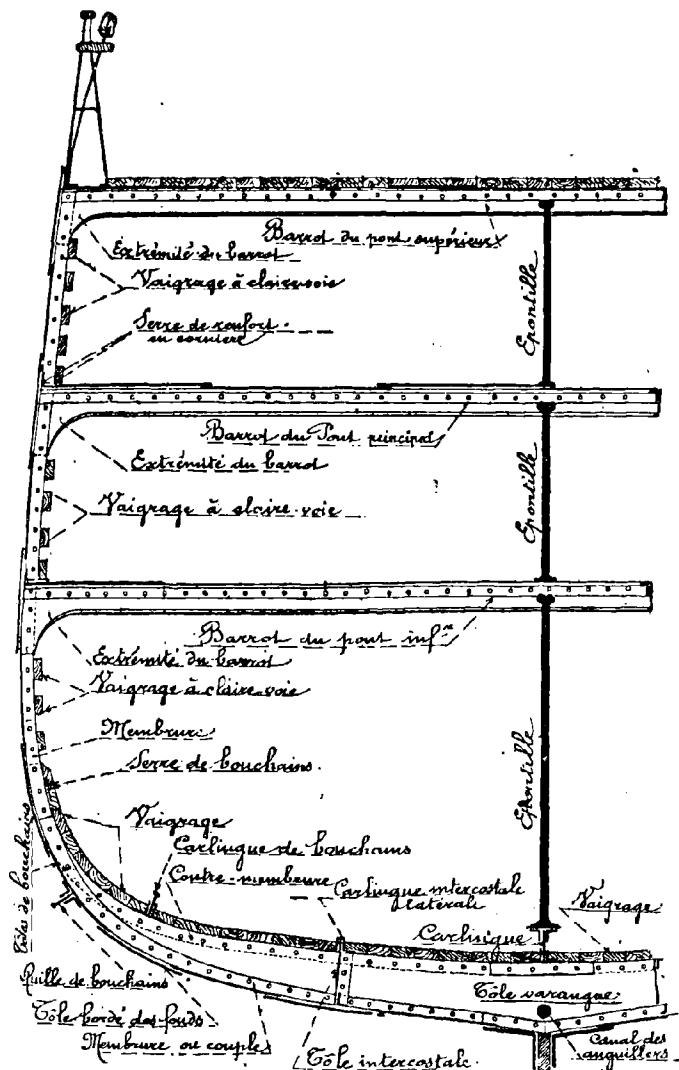 Extrémité du barrot
Barrot du pont supérieur
Vaigrage à claire-voie
Serre de renfort
en cornière
Epontille
Barrot du Pont principal
Extrémité du barrot
Vaigrage à claire-voie
Epontille
Barrot du pont infr
Extrémité du barrot
Vaigrage à claire-voie
Membrure
Serre de bouchains.
Epontille
Vaigrage
Carlingue de bouchains
Contre-membrure
Carlingue intercostale
latérale
Vaigrage
Carlingue
Tôles de bouchains
Quille de bouchains
Tôle bordé des fonds
Membrure ou couple
Tôle intercostale.
Tôle varangue
Canal des
anguillers